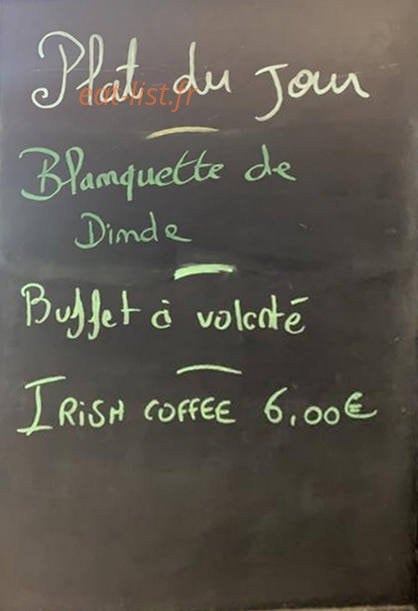 Plat du Jour
eat-list.fr
Blanquette de
Dinde
Buffet à volonté
IRISH COFFEE 6,00€